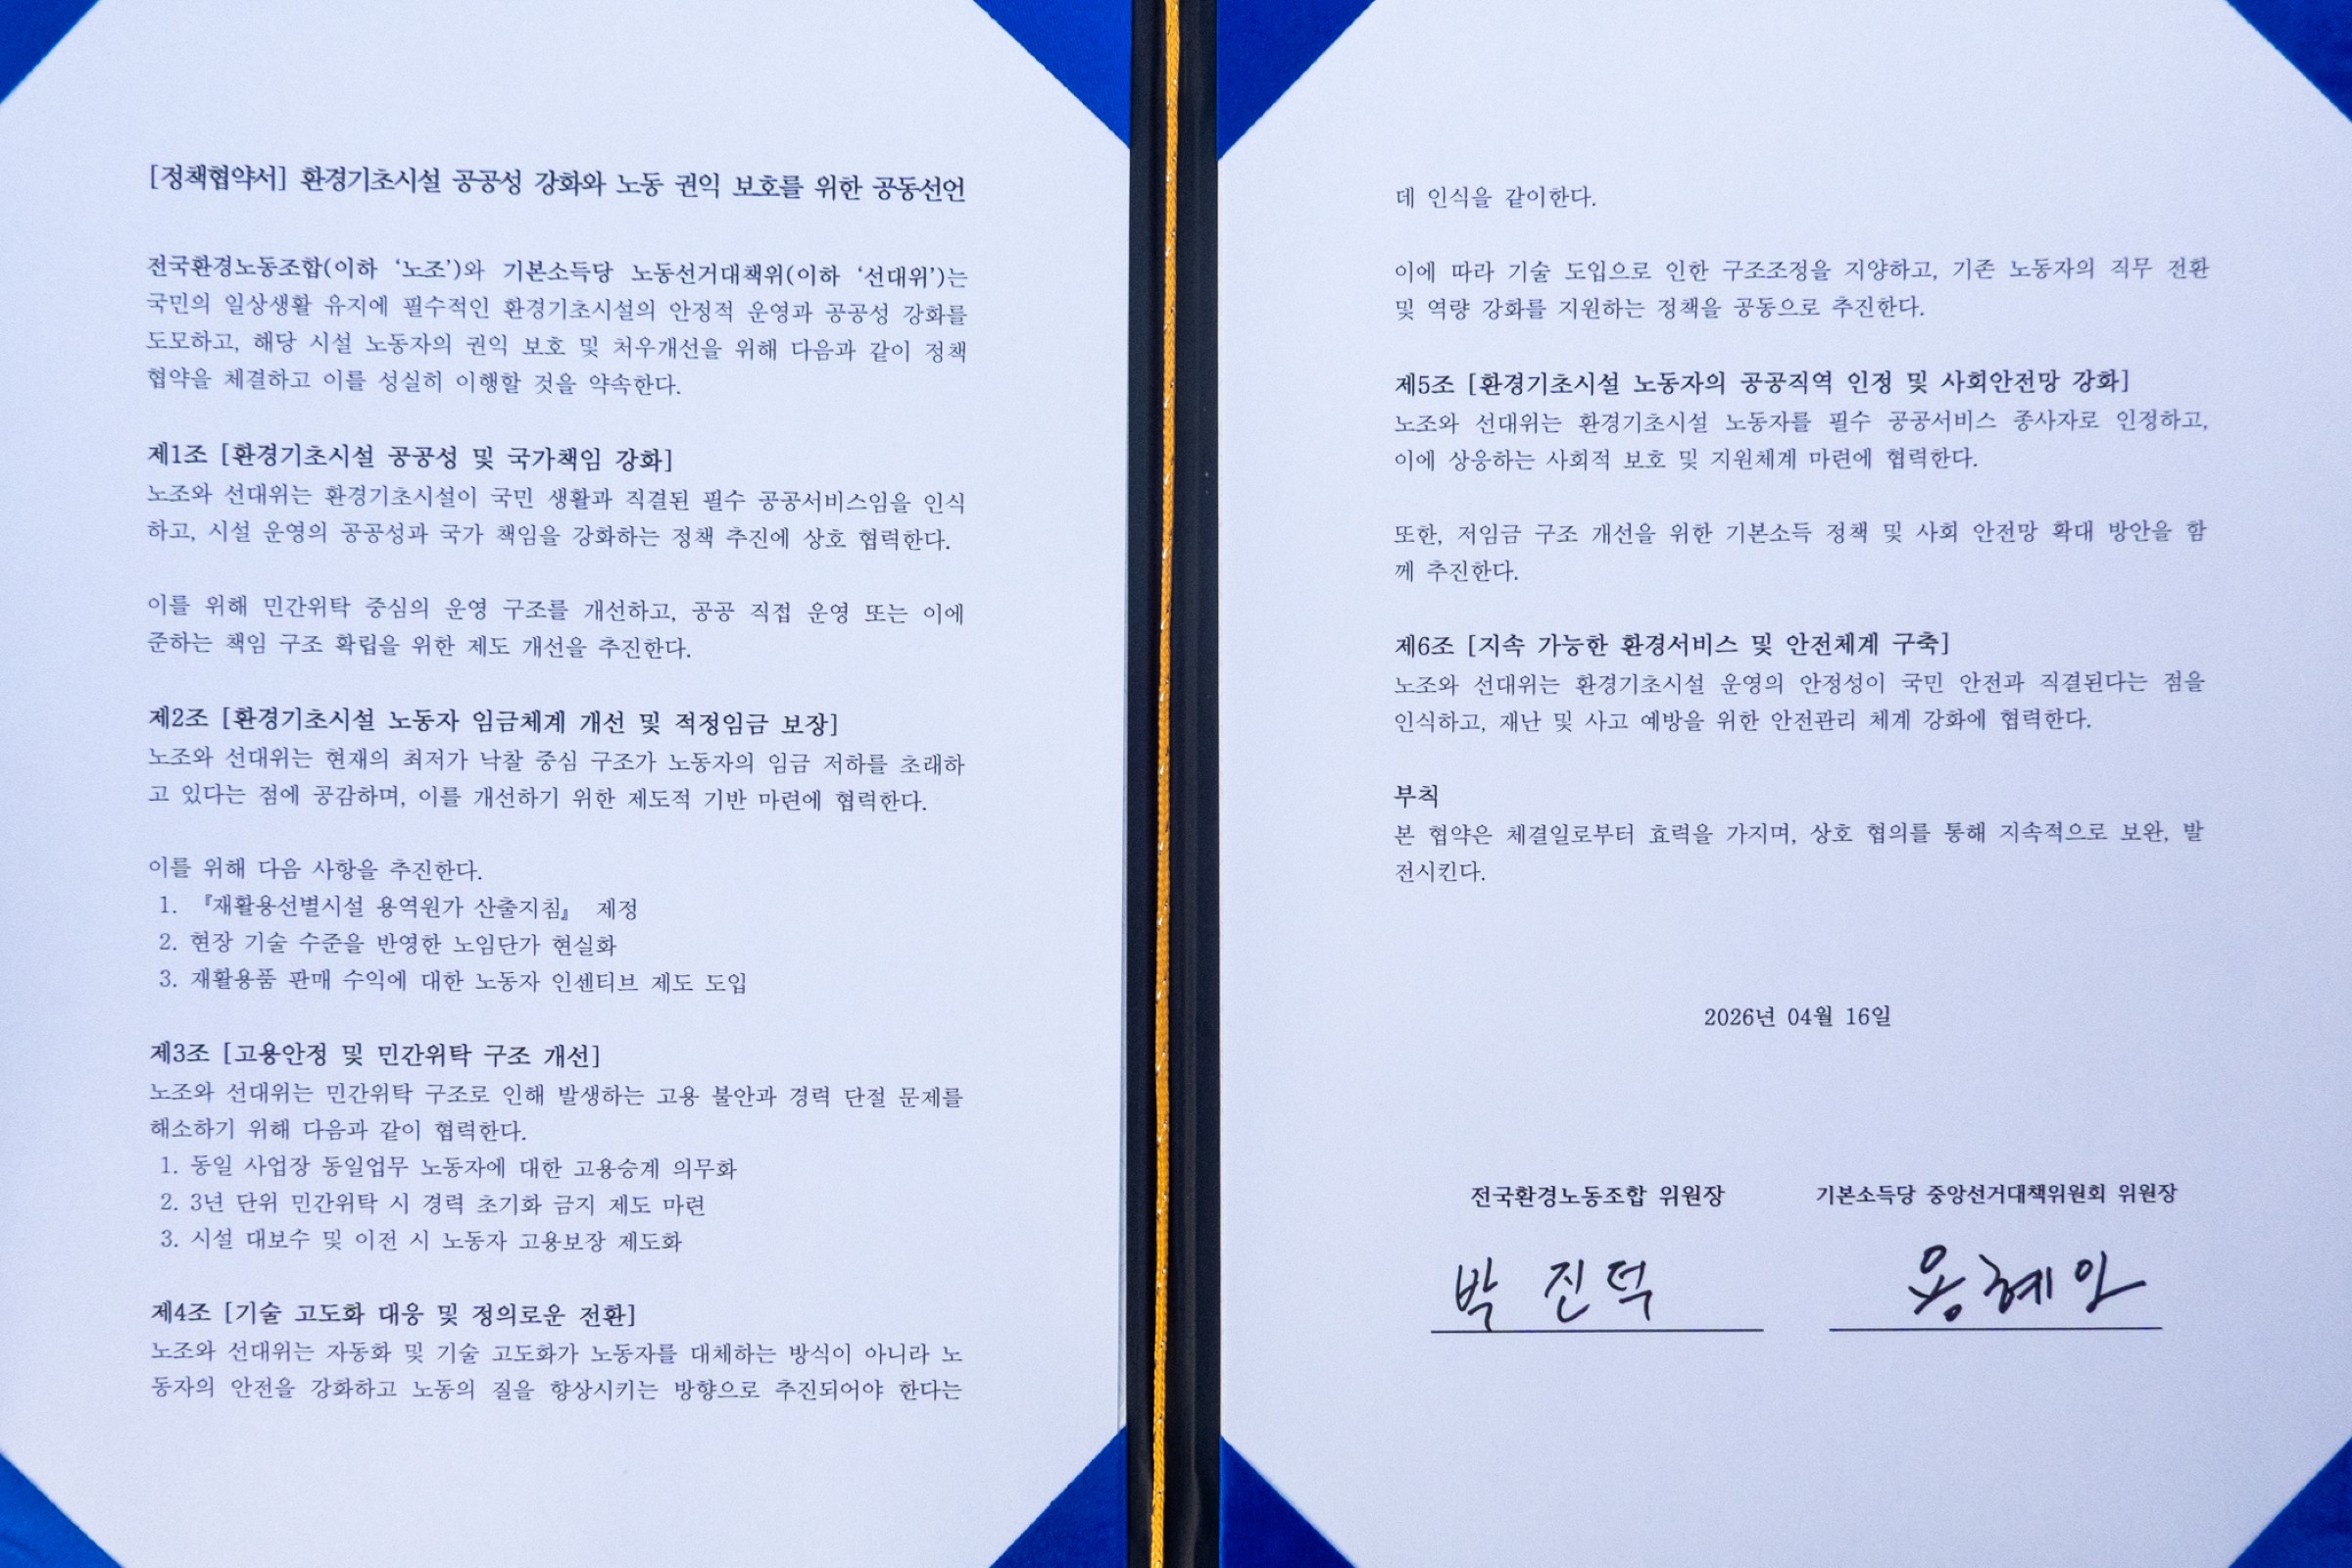 [정책협약서] 환경기초시설 공공성 강화와 노동 권익 보호를 위한 공동선언
전국환경노동조합(이하 ‘노조’)와 기본소득당 노동선거대책위(이하 ‘선대위’)는
국민의 일상생활 유지에 필수적인 환경기초시설의 안정적 운영과 공공성 강화를
도모하고, 해당 시설 노동자의 권익 보호 및 처우개선을 위해 다음과 같이 정책
협약을 체결하고 이를 성실히 이행할 것을 약속한다.
제1조 [환경기초시설 공공성 및 국가책임 강화]
노조와 선대위는 환경기초시설이 국민 생활과 직결된 필수 공공서비스임을 인식
하고, 시설 운영의 공공성과 국가 책임을 강화하는 정책 추진에 상호 협력한다.
이를 위해 민간위탁 중심의 운영 구조를 개선하고, 공공 직접 운영 또는 이에
준하는 책임 구조 확립을 위한 제도 개선을 추진한다.
제2조 [환경기초시설 노동자 임금체계 개선 및 적정임금 보장]
노조와 선대위는 현재의 최저가 낙찰 중심 구조가 노동자의 임금 저하를 초래하
고 있다는 점에 공감하며, 이를 개선하기 위한 제도적 기반 마련에 협력한다.
이를 위해 다음 사항을 추진한다.
1. 『재활용선별시설 용역원가 산출지침』 제정
2. 현장 기술 수준을 반영한 노임단가 현실화
3. 재활용품 판매 수익에 대한 노동자 인센티브 제도 도입
제3조 [고용안정 및 민간위탁 구조 개선]
노조와 선대위는 민간위탁 구조로 인해 발생하는 고용 불안과 경력 단절 문제를
해소하기 위해 다음과 같이 협력한다.
1. 동일 사업장 동일업무 노동자에 대한 고용승계 의무화
2. 3년 단위 민간위탁 시 경력 초기화 금지 제도 마련
3. 시설 대보수 및 이전 시 노동자 고용보장 제도화
제4조 [기술 고도화 대응 및 정의로운 전환]
노조와 선대위는 자동화 및 기술 고도화가 노동자를 대체하는 방식이 아니라 노
동자의 안전을 강화하고 노동의 질을 향상시키는 방향으로 추진되어야 한다는
데 인식을 같이한다.
이에 따라 기술 도입으로 인한 구조조정을 지양하고, 기존 노동자의 직무 전환
및 역량 강화를 지원하는 정책을 공동으로 추진한다.
제5조 [환경기초시설 노동자의 공공직역 인정 및 사회안전망 강화]
노조와 선대위는 환경기초시설 노동자를 필수 공공서비스 종사자로 인정하고,
이에 상응하는 사회적 보호 및 지원체계 마련에 협력한다.
또한, 저임금 구조 개선을 위한 기본소득 정책 및 사회 안전망 확대 방안을 함
께 추진한다.
제6조 [지속 가능한 환경서비스 및 안전체계 구축]
노조와 선대위는 환경기초시설 운영의 안정성이 국민 안전과 직결된다는 점을
인식하고, 재난 및 사고 예방을 위한 안전관리 체계 강화에 협력한다.
부칙
본 협약은 체결일로부터 효력을 가지며, 상호 협의를 통해 지속적으로 보완, 발
전시킨다.
2026년 04월 16일
전국환경노동조합 위원장 기본소득당 중앙선거대책위원회 위원장
박 진덕 용혜인